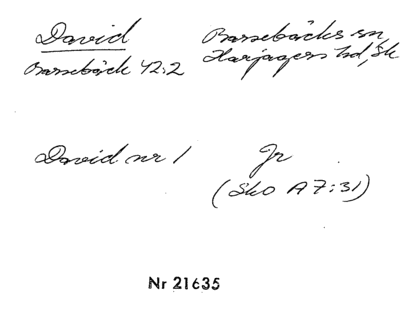 David Barsebäcks sn
Barsebäck 42:2 Harjagers hd, Sk
David nr 1 Jr
(Sko A7:31)
Nr 21635